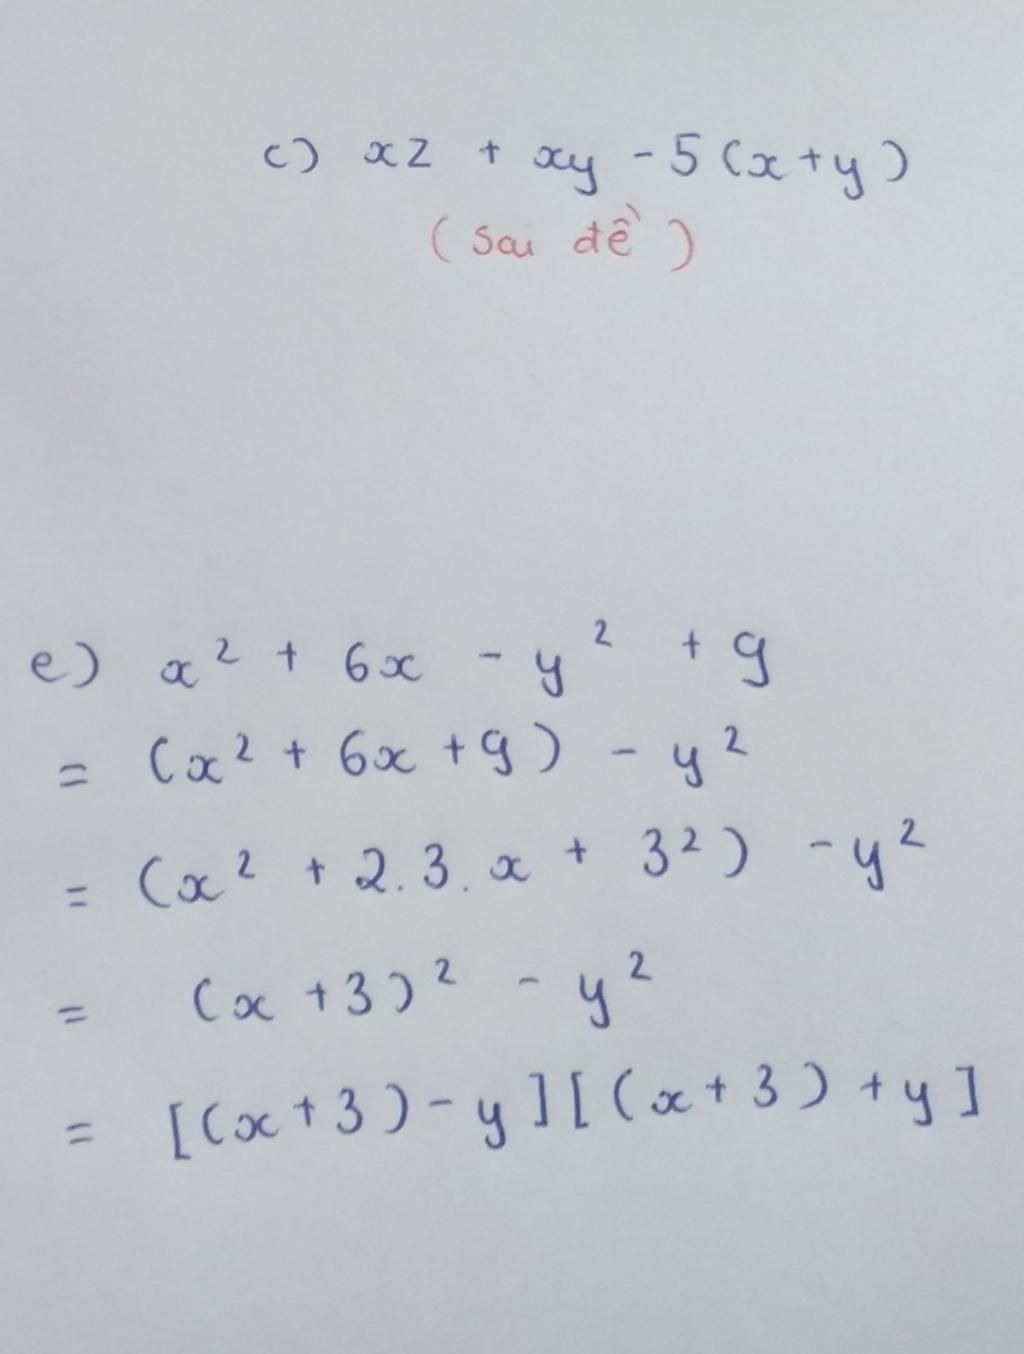 c) xz + xy - 5(x+y)
(Sai đề)
e) x² + 6x - y² + 9
= (x² + 6x + 9) - y²
= (x² + 2.3.x + 3²) - y²
= (x+3)² - y²
= [(x+3)-y][(x+3)+y]